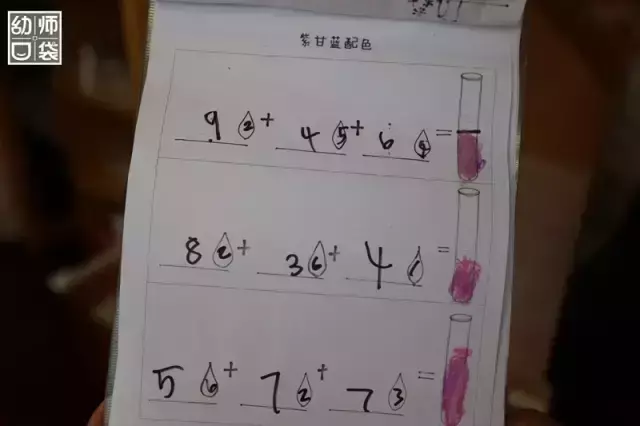 幼师口袋
紫甘蓝配色
9 2 + 4 5 + 6 9 =
8 2 + 3 6 + 4 1 =
5 6 + 7 2 + 7 3 =